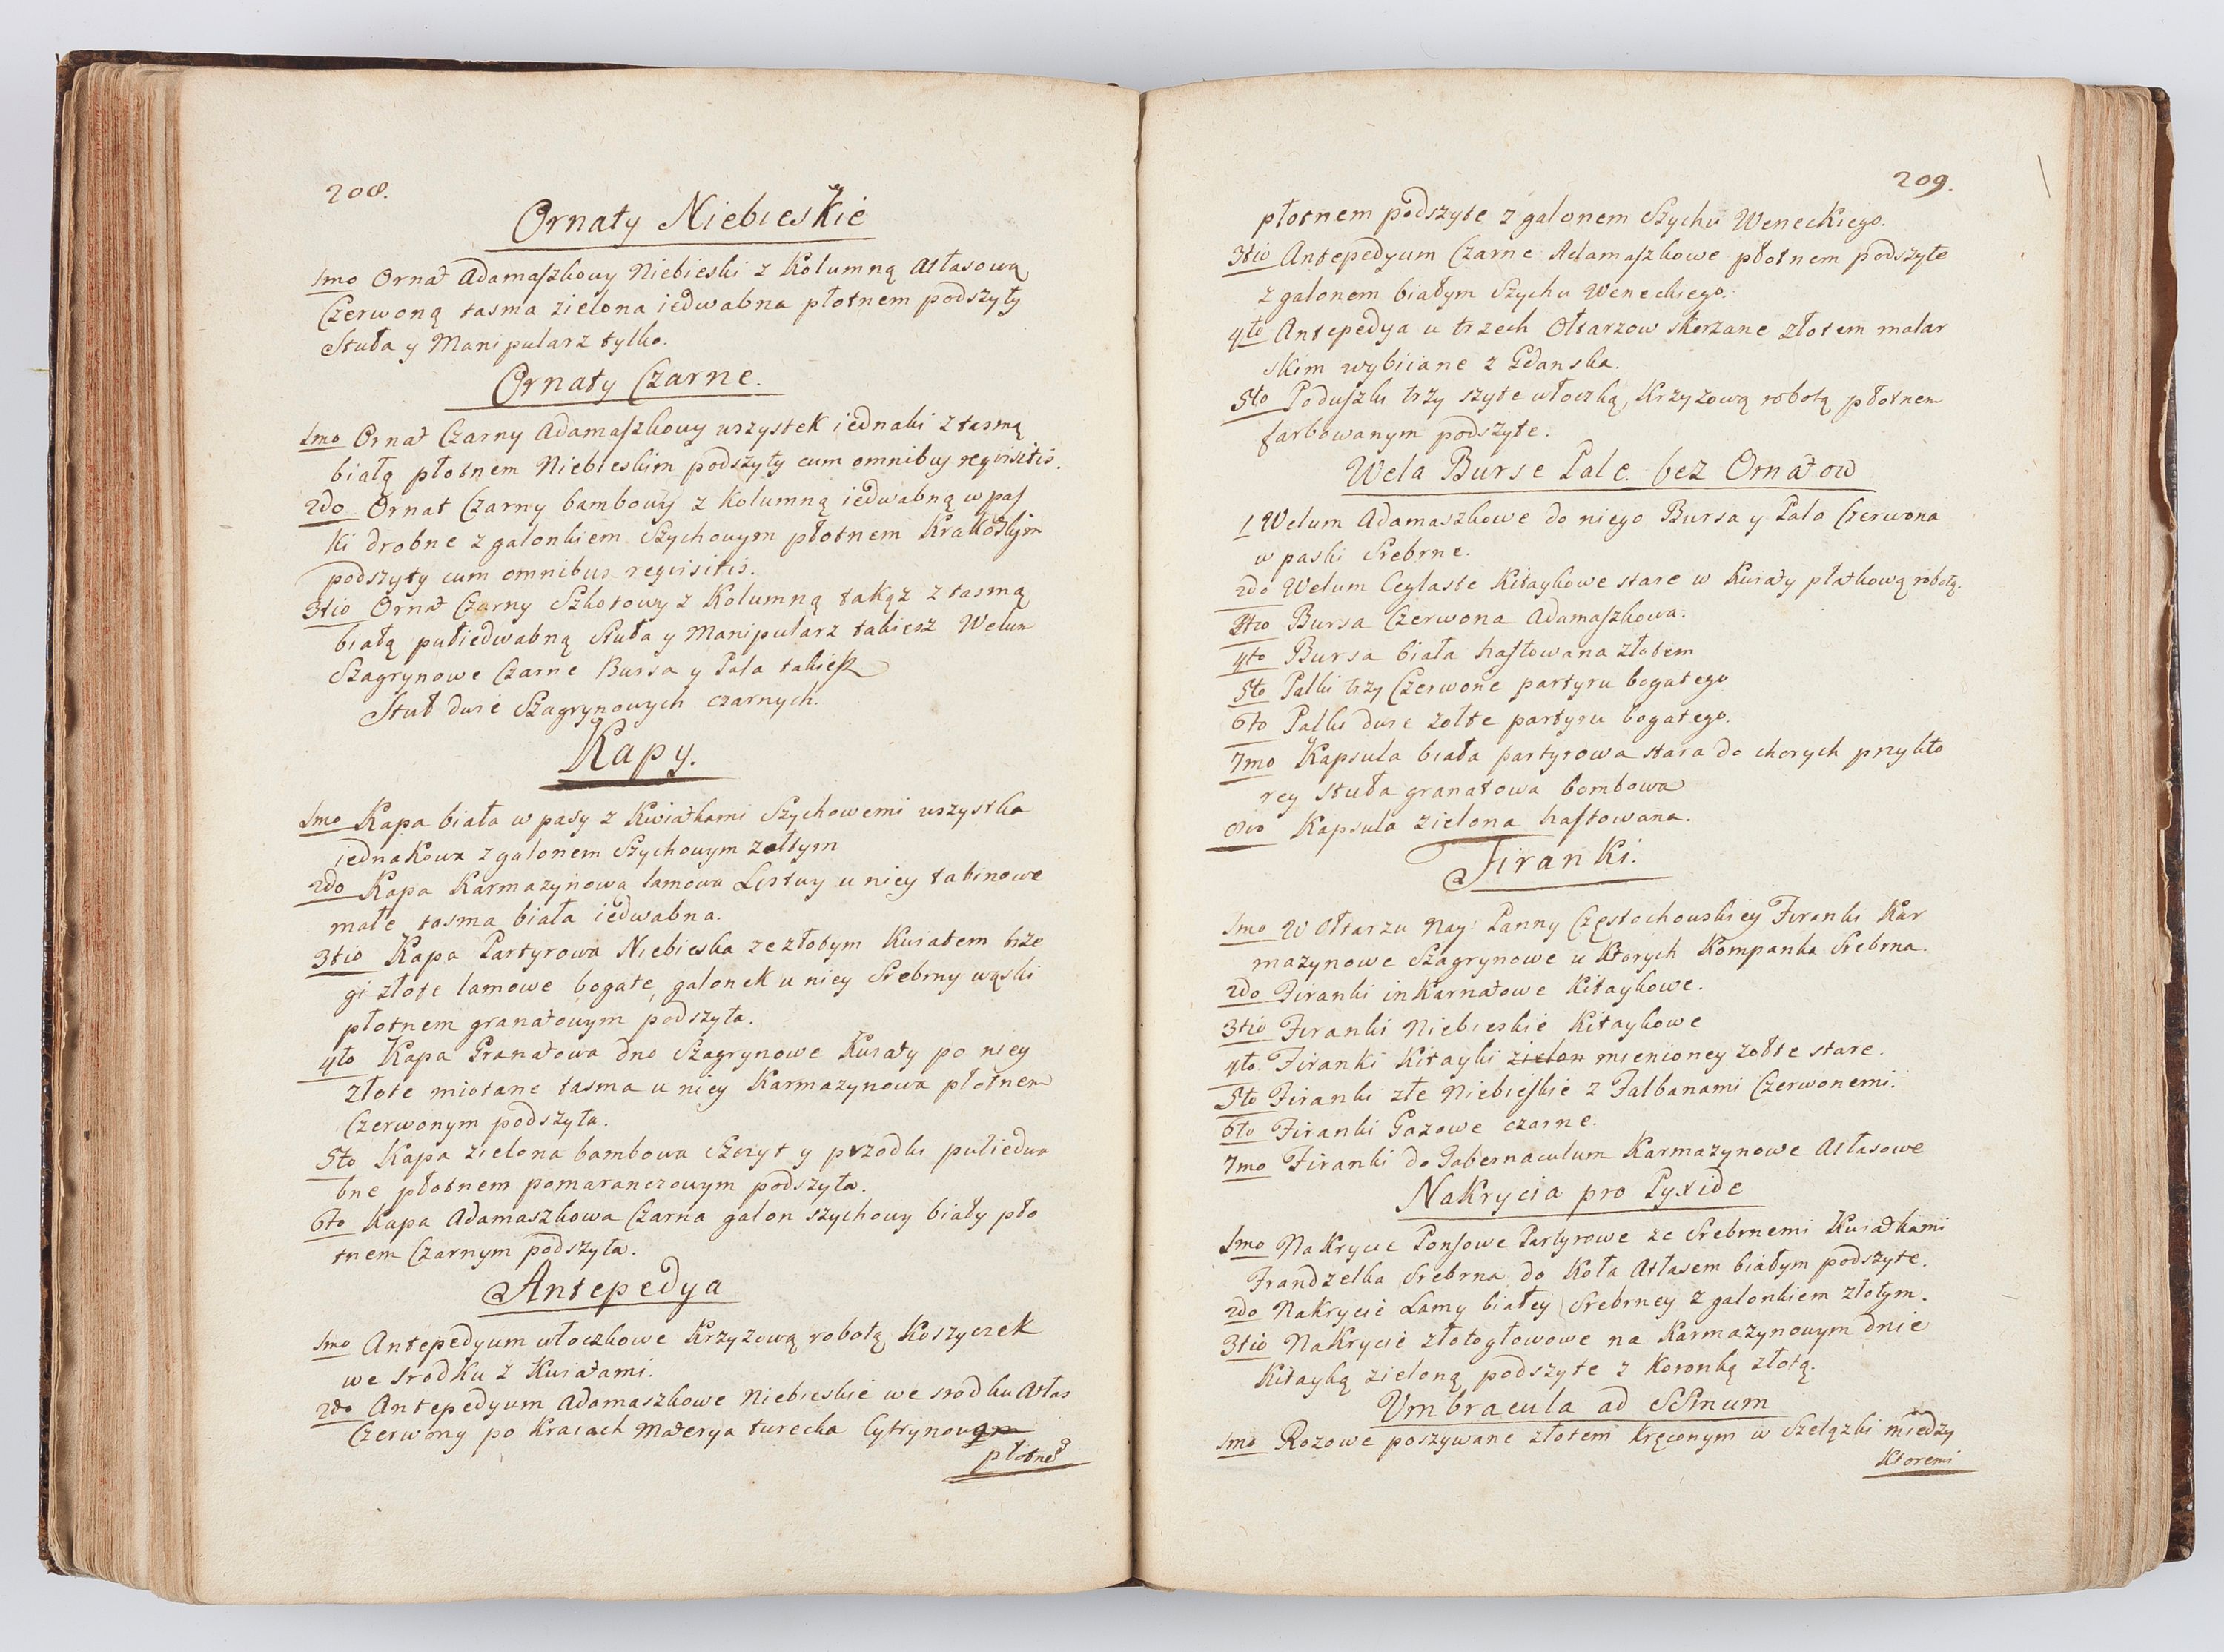 208.
Ornaty Niebieskie
1mo Ornat Adamaszkowy Niebieski z Kolumną Atłasową
Czerwoną tasma zielona iedwabna płotnem podszyty
Stuła y Manipularz tylko.
Ornaty Czarne.
1mo Ornat Czarny Adamaszkowy wszystek iednaki z tasmą
białą płotnem Niebieskim podszyty cum omnibus reqvisitis.
2do Ornat Czarny bambowy z Kolumną iedwabną w pas
ki drobne z galonkiem Szychowym płotnem
podszyty cum omnibus reqvisitis.
3tio Ornat Czarny Szkotowy z Kolumną takąz z tasmą
białą pułiedwabną Stuła y Manipularz takiesz Welum
Szagrynowe Czarne Bursa y Pala takiesz
Stuł dwie Szagrynowych czarnych.
Kapy.
1mo Kapa biała w pasy z Kwiatkami Szychowemi wszystka
iednakowa z galonem Szychowym zołtym
2do Kapa Karmazynowa lamowa Listwy u niey tabinowe
małe tasma biała iedwabna.
3tio Kapa Partyrowa Niebieska ze złotym Kwiatem brze
gi złote lamowe bogate, galonek u niey Srebrny wąski
płotnem granatowym podszyta.
4to Kapa Granatowa dno Szagrynowe Kwiaty po niey
złote miotane tasma u niey Karmazynowa płotnem
Czerwonym podszyta.
5to Kapa zielona bambowa Szczyt y przodki pułiedwa
bne płotnem pomaranczowym podszyta.
6to Kapa Adamaszkowa Czarna galon szychowy biały pło
tnem Czarnym podszyta.
Antepedya
1mo Antepedyum włoczkowe Krzyzową robotą Koszyczek
we srodku z Kwiatami.
2do Antepedyum Adamaszkowe Niebieskie we srodku Atłas
Czerwony po Kraiach Materya turecka
płotne
209.
płotnem podszyte z galonem Szychu Weneckiego.
3tio Antepedyum Czarne Adamaszkowe płotnem podszyte
z galonem białym Szychu Weneckiego.
4to Antepedya u trzech Ołtarzow skorzane złotem malar
skim wybiiane z Gdanska.
5to Poduszki trzy szyte włoczką, Krzyzową robotą płotnem
farbowanym podszyte.
Wela Burse Pale bez Ornatow
1 Welum Adamaszkowe do niego Bursa y Pala Czerwona
w paski Srebrne.
2do Welum Ceglaste Kitaykowe stare w Kwiaty płatkową robotą.
3tio Bursa Czerwona Adamaszkowa.
4to Bursa biała haftowana złotem
5to Palki trzy Czerwone partyru bogatego
6to Palki dwie zołte partyru bogatego.
7mo Kapsula biała partyrowa stara do chorych przy kto
rey stuła granatowa bombowa
8vo Kapsula zielona haftowana.
Firanki.
1mo W Ołtarzu Nay: Panny Częstochowskiey Firanki Kar
mazynowe Szagrynowe u Ktorych Kompanka Srebrna.
2do Firanki inkarnatowe Kitaykowe.
3tio Firanki Niebieskie Kitaykowe
4to Firanki Kitayki zielon mienioney zołte stare.
5to Firanki złe Niebieskie z Falbanami Czerwonemi.
6to Firanki Gazowe czarne.
7mo Firanki do Tabernaculum Karmazynowe Atłasowe
Nakrycia pro Pyxide
1mo Nakrycie Ponsowe Partyrowe ze Srebrnemi Kwiatkami
Frandzelka Srebrna do Koła Atłasem białym podszyte.
2do Nakrycie Lamy białey Srebrney z galonkiem złotym.
3tio Nakrycie złotogłowowe na Karmazynowym dnie
Kitayką zieloną podszyte z Koronką złotą.
Vmbracula ad SSmum
1mo Rozowe poszywane złotem kręconym w Szelązki miedzy
Ktoremi